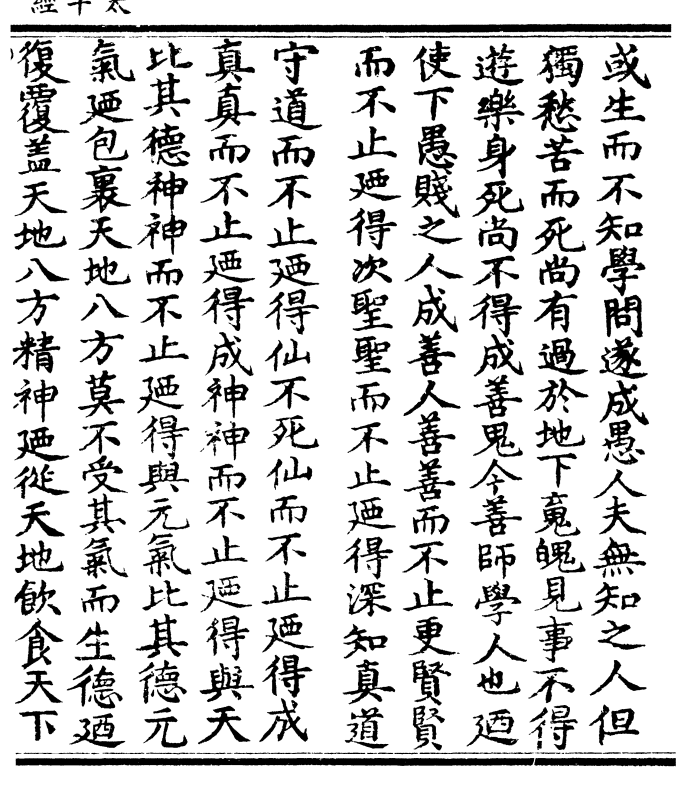 太平經
或生而不知學問遂成愚人夫無知之人但
獨愁苦而死尚有過於地下䰟魄見事不得
遊樂身死尚不得成善鬼今善師學人也廼
使下愚賤之人成善人善善而不止更賢賢
而不止廼得次聖聖而不止廼得深知真道
守道而不止廼得仙不死仙而不止廼得成
真真而不止廼得成神神而不止廼得與天
比其德神神而不止廼得與元氣比其德元
氣廼包裹天地八方莫不受其氣而生德廼
復覆盖天地八方精神廼從天地飲食天下